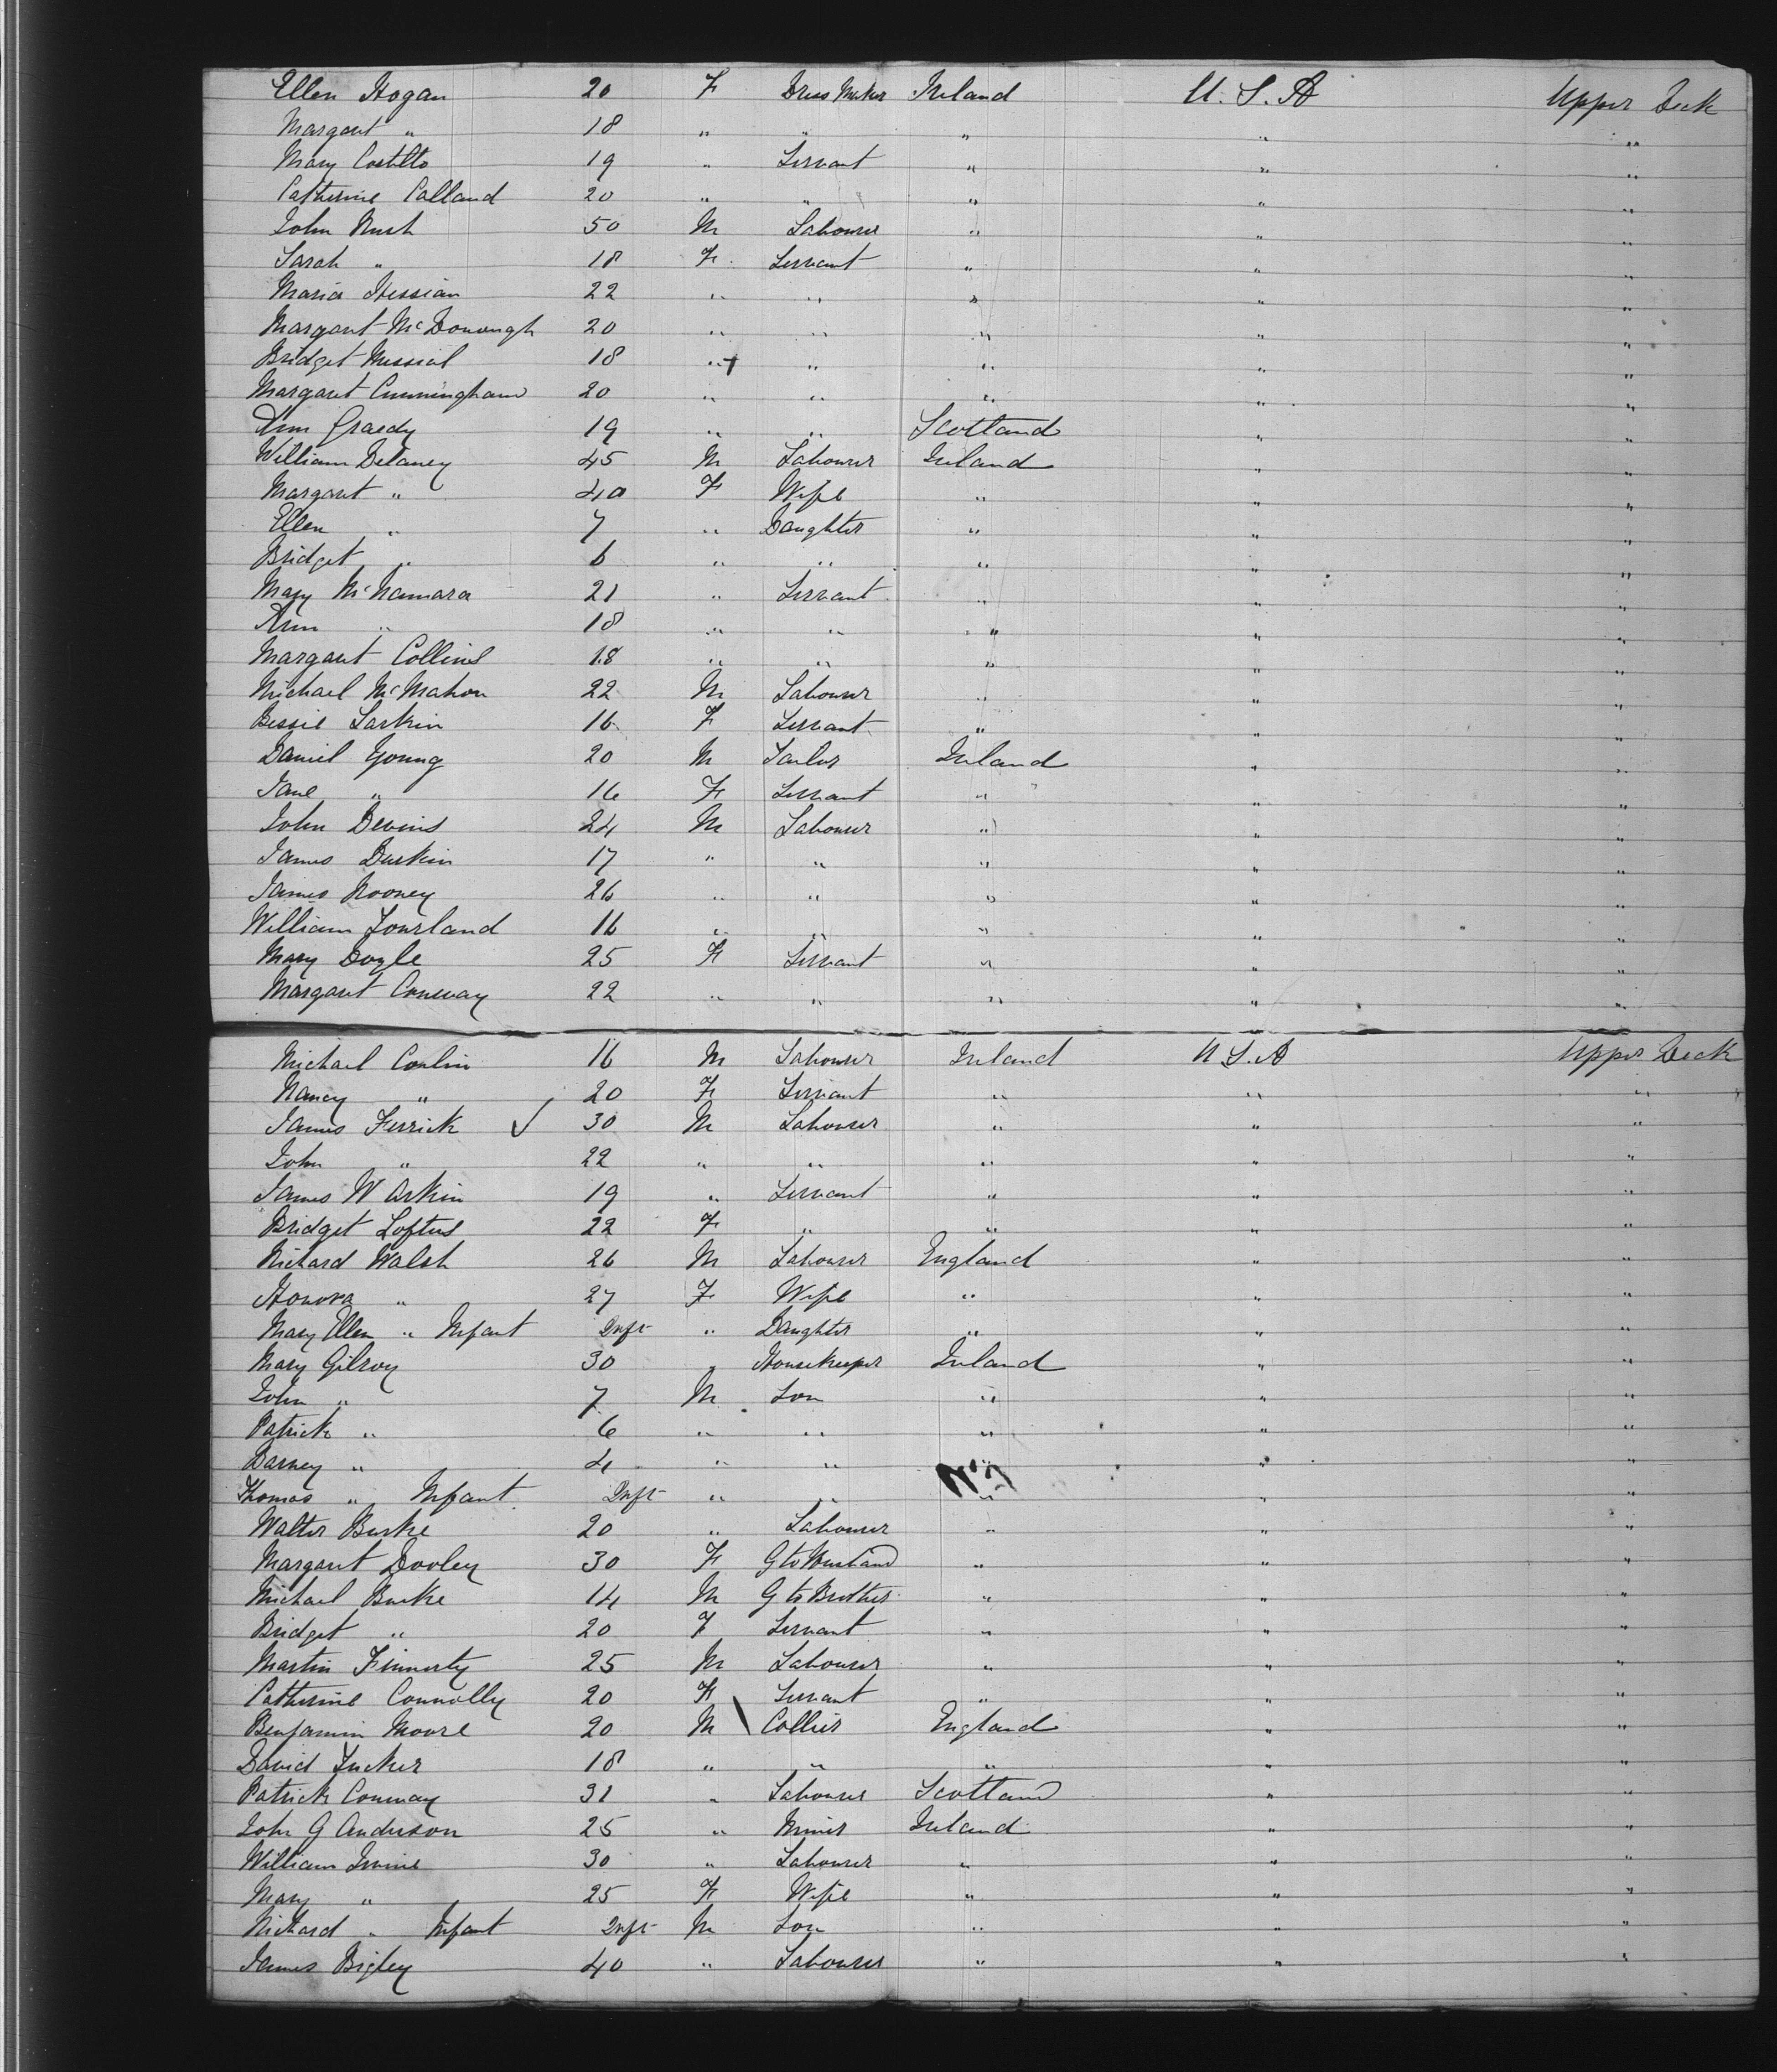 Ellen Hogan 20 F Dress Maker Ireland U. S. A Upper Deck
Margaret " 18 " " " " "
Mary Costello 19 " Servant " " "
Catherine Calland 20 " " " " "
John Rush 50 M Labourer " " "
Sarah " 18 F. Servant " " "
Maria Hessian 22 " " " " "
Margaret McDonough 20 " " " " "
Bridget 18 " + " " " "
Margaret Cunningham 20 " " " " "
Ann Graedy 19 " " Scotland " "
William Delaney 45 M Labourer Ireland " "
Margaret " 40 F Wife " " "
Ellen " 7 " Daughter " " "
Bridget " 6 " " " " "
Mary McNamara 21 " Servant " " "
Ann " 18 " " " " "
Margaret Collins 18 " " " " "
Michael McMahon 22 M Labourer " " "
Bessie Larkin 16 F Servant " " "
Daniel Young 20 M Ireland " "
Jane " 16 F Servant " " "
John Devins 24 M Labourer " " "
James Durkin 17 " " " " "
James Rooney 26 " " " " "
William 16 " " " " "
Mary Doyle 25 F Servant " " "
Margaret Conway 22 " " " " "
Michael Conlin 16 M Labourer Ireland U S. A Upper Deck
Nancy " 20 F Servant " " "
James Ferrick ✓ 30 M Labourer " " "
John " 22 " " " " "
James W Arkin 19 " Servant " " "
Bridget Loftus 22 F " " " "
Richard Walsh 26 M Labourer England " "
Honora " 27 F Wife " " "
Mary Ellen " Infant Inft " Daughter " " "
Mary Gilroy 30 " Housekeeper Ireland " "
John " 7 M Son " " "
Patrick " 6 " " " " "
Barney " 4 " " " " "
Thomas " Infant Inft " " " " "
Walter Burke 20 " Labourer " " "
Margaret Dooley 30 F G to Husband " " "
Michael Burke 14 M G to Brother " " "
Bridget " 20 F Servant " " "
Martin Finnerty 25 M Labourer " " "
Catherine Connolly 20 F Servant " " "
Benjamin Moore 20 M \ Collier England " "
David Tucker 18 " " " " "
Patrick Conway 31 " Labourer Scotland " "
John G Anderson 25 " Miner Ireland " "
William Irvine 30 " Labourer " " "
Mary " 25 F Wife " " "
Richard " Infant Inft M Son " " "
James Bigley 40 " Labourer " " "